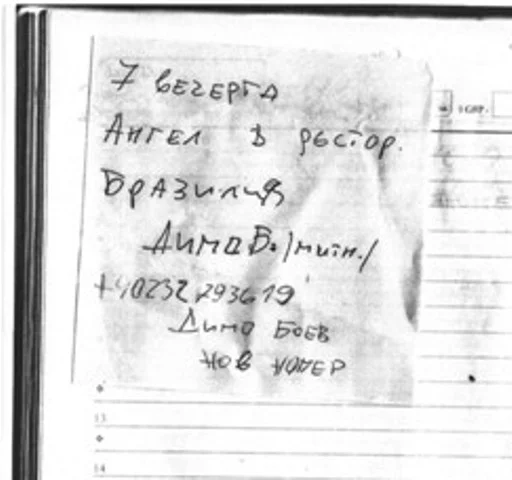 7 вечерта
Ангел в рестор.
Бразилия
Димо Б. /митн./
+40232 293619
Димо Боев
нов номер
13
14